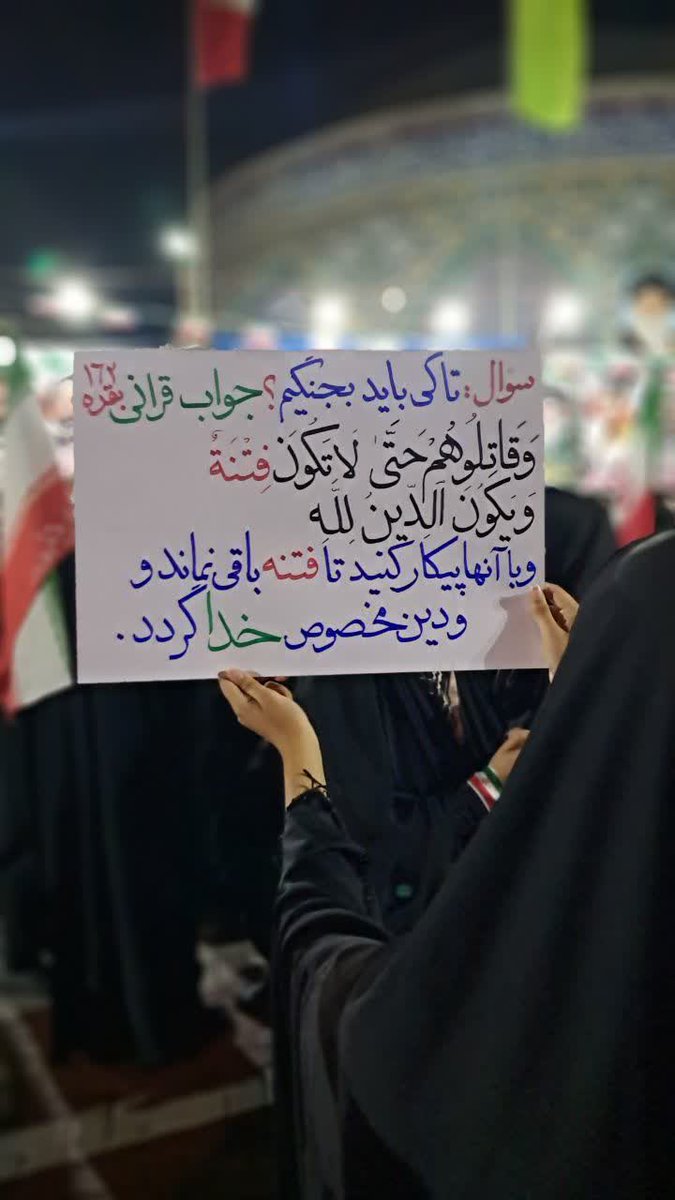 سؤال: تاکی باید بجنگیم؟ جواب قرانی بقره ۱۶۲
وَقَاتِلُوهُمْ حَتَّىٰ لَا تَكُونَ فِتْنَةٌ
وَيَكُونَ الدِّينُ لِلَّهِ
وباآنها پیکار کنید تا فتنه باقی نماند و
ودین مخصوص خدا گردد.